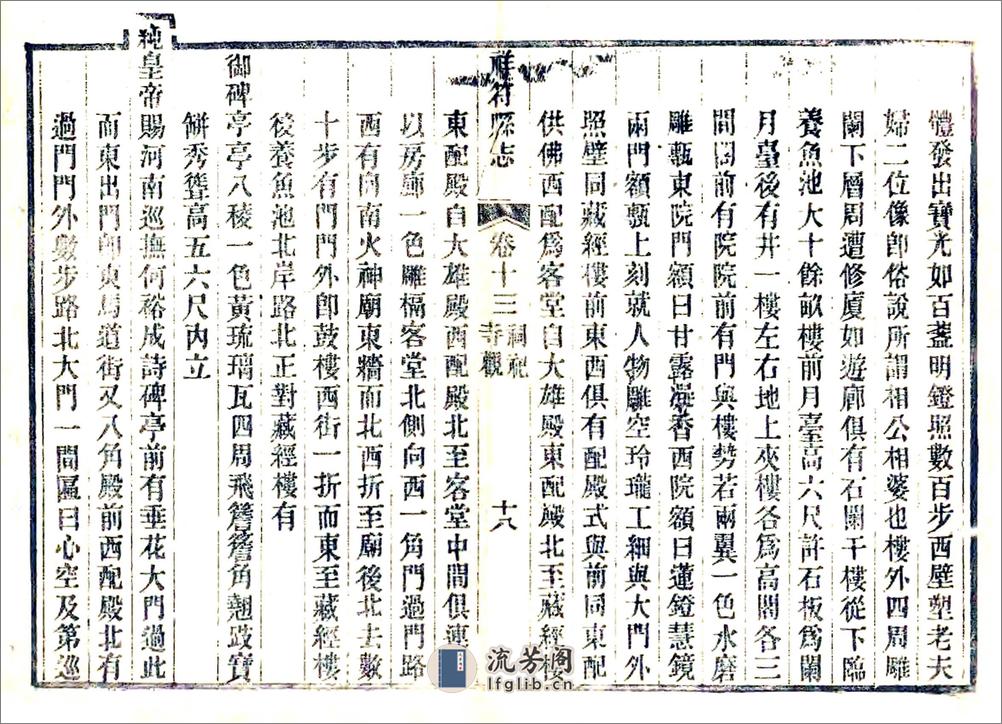 體發出寶光如百盞明鐙照數百步西壁塑老夫
婦二位像卽俗說所謂相公相婆也樓外四周雕
闌下層周遭修廈如遊廊俱有石闌干樓從下臨
養魚池大十餘畝樓前月臺高六尺許石板爲闌
月臺後有井一樓左右地上夾樓各爲高閣各三
間閣前有院院前有門與樓勢若兩翼一色水磨
雕甎東院門額曰甘露海香西院額曰蓮鐙慧鏡
兩門額甎上刻就人物雕空玲瓏工細與大門外
照壁同藏經樓前東西俱有配殿式與前同東配
供佛西配爲客堂自大雄殿東配殿北至藏經樓
祥符縣志
卷十三
祠祀
寺觀
十八
東配殿自大雄殿西配殿北至客堂中間俱連
以房廊一色雕槅客堂北側向西一角門過門路
西有向南火神廟東牆而北西折至廟後北去數
十步有門門外卽鼓樓西街一折而東至藏經樓
後養魚池北岸路北正對藏經樓有
御碑亭亭八稜一色黃琉璃瓦四周飛簷簷角翹跂寶
缾秀聳高五六尺內立
純皇帝賜河南巡撫何裕成詩碑亭前有垂花大門過此
而東出門卽東馬道街又八角殿前西配殿北有
過門門外數步路北大門一間區曰心空及第巡
流芳阁
lfglib.cn